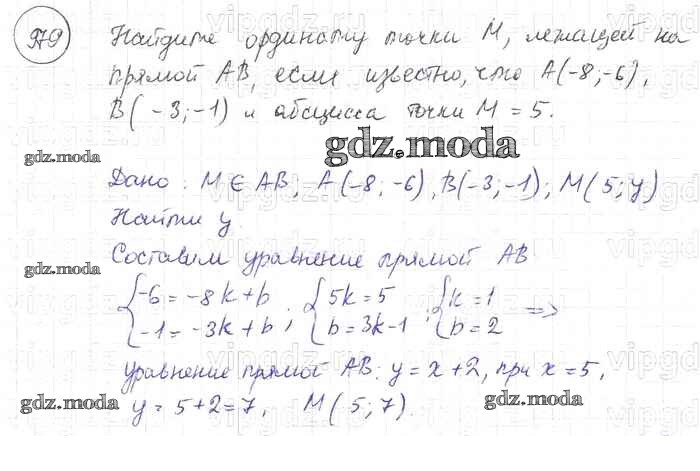 979
Найдите ординату точки M, лежащей на
прямой AB, если известно, что A(-8;-6),
B(-3;-1) и абсцисса точки M = 5.
gdz.moda
gdz.moda
Дано: M ∈ AB, A(-8;-6), B(-3;-1); M(5;y)
Найти y.
Составим уравнение прямой AB
gdz.moda
gdz.moda
{-6 = -8k+b ; {5k = 5 ; {k = 1 =>
{-1 = -3k+b ; {b = 3k-1 ; {b = 2
уравнение прямой AB: y = x+2, при x = 5,
y = 5+2 = 7, M(5;7).
gdz.moda
gdz.moda